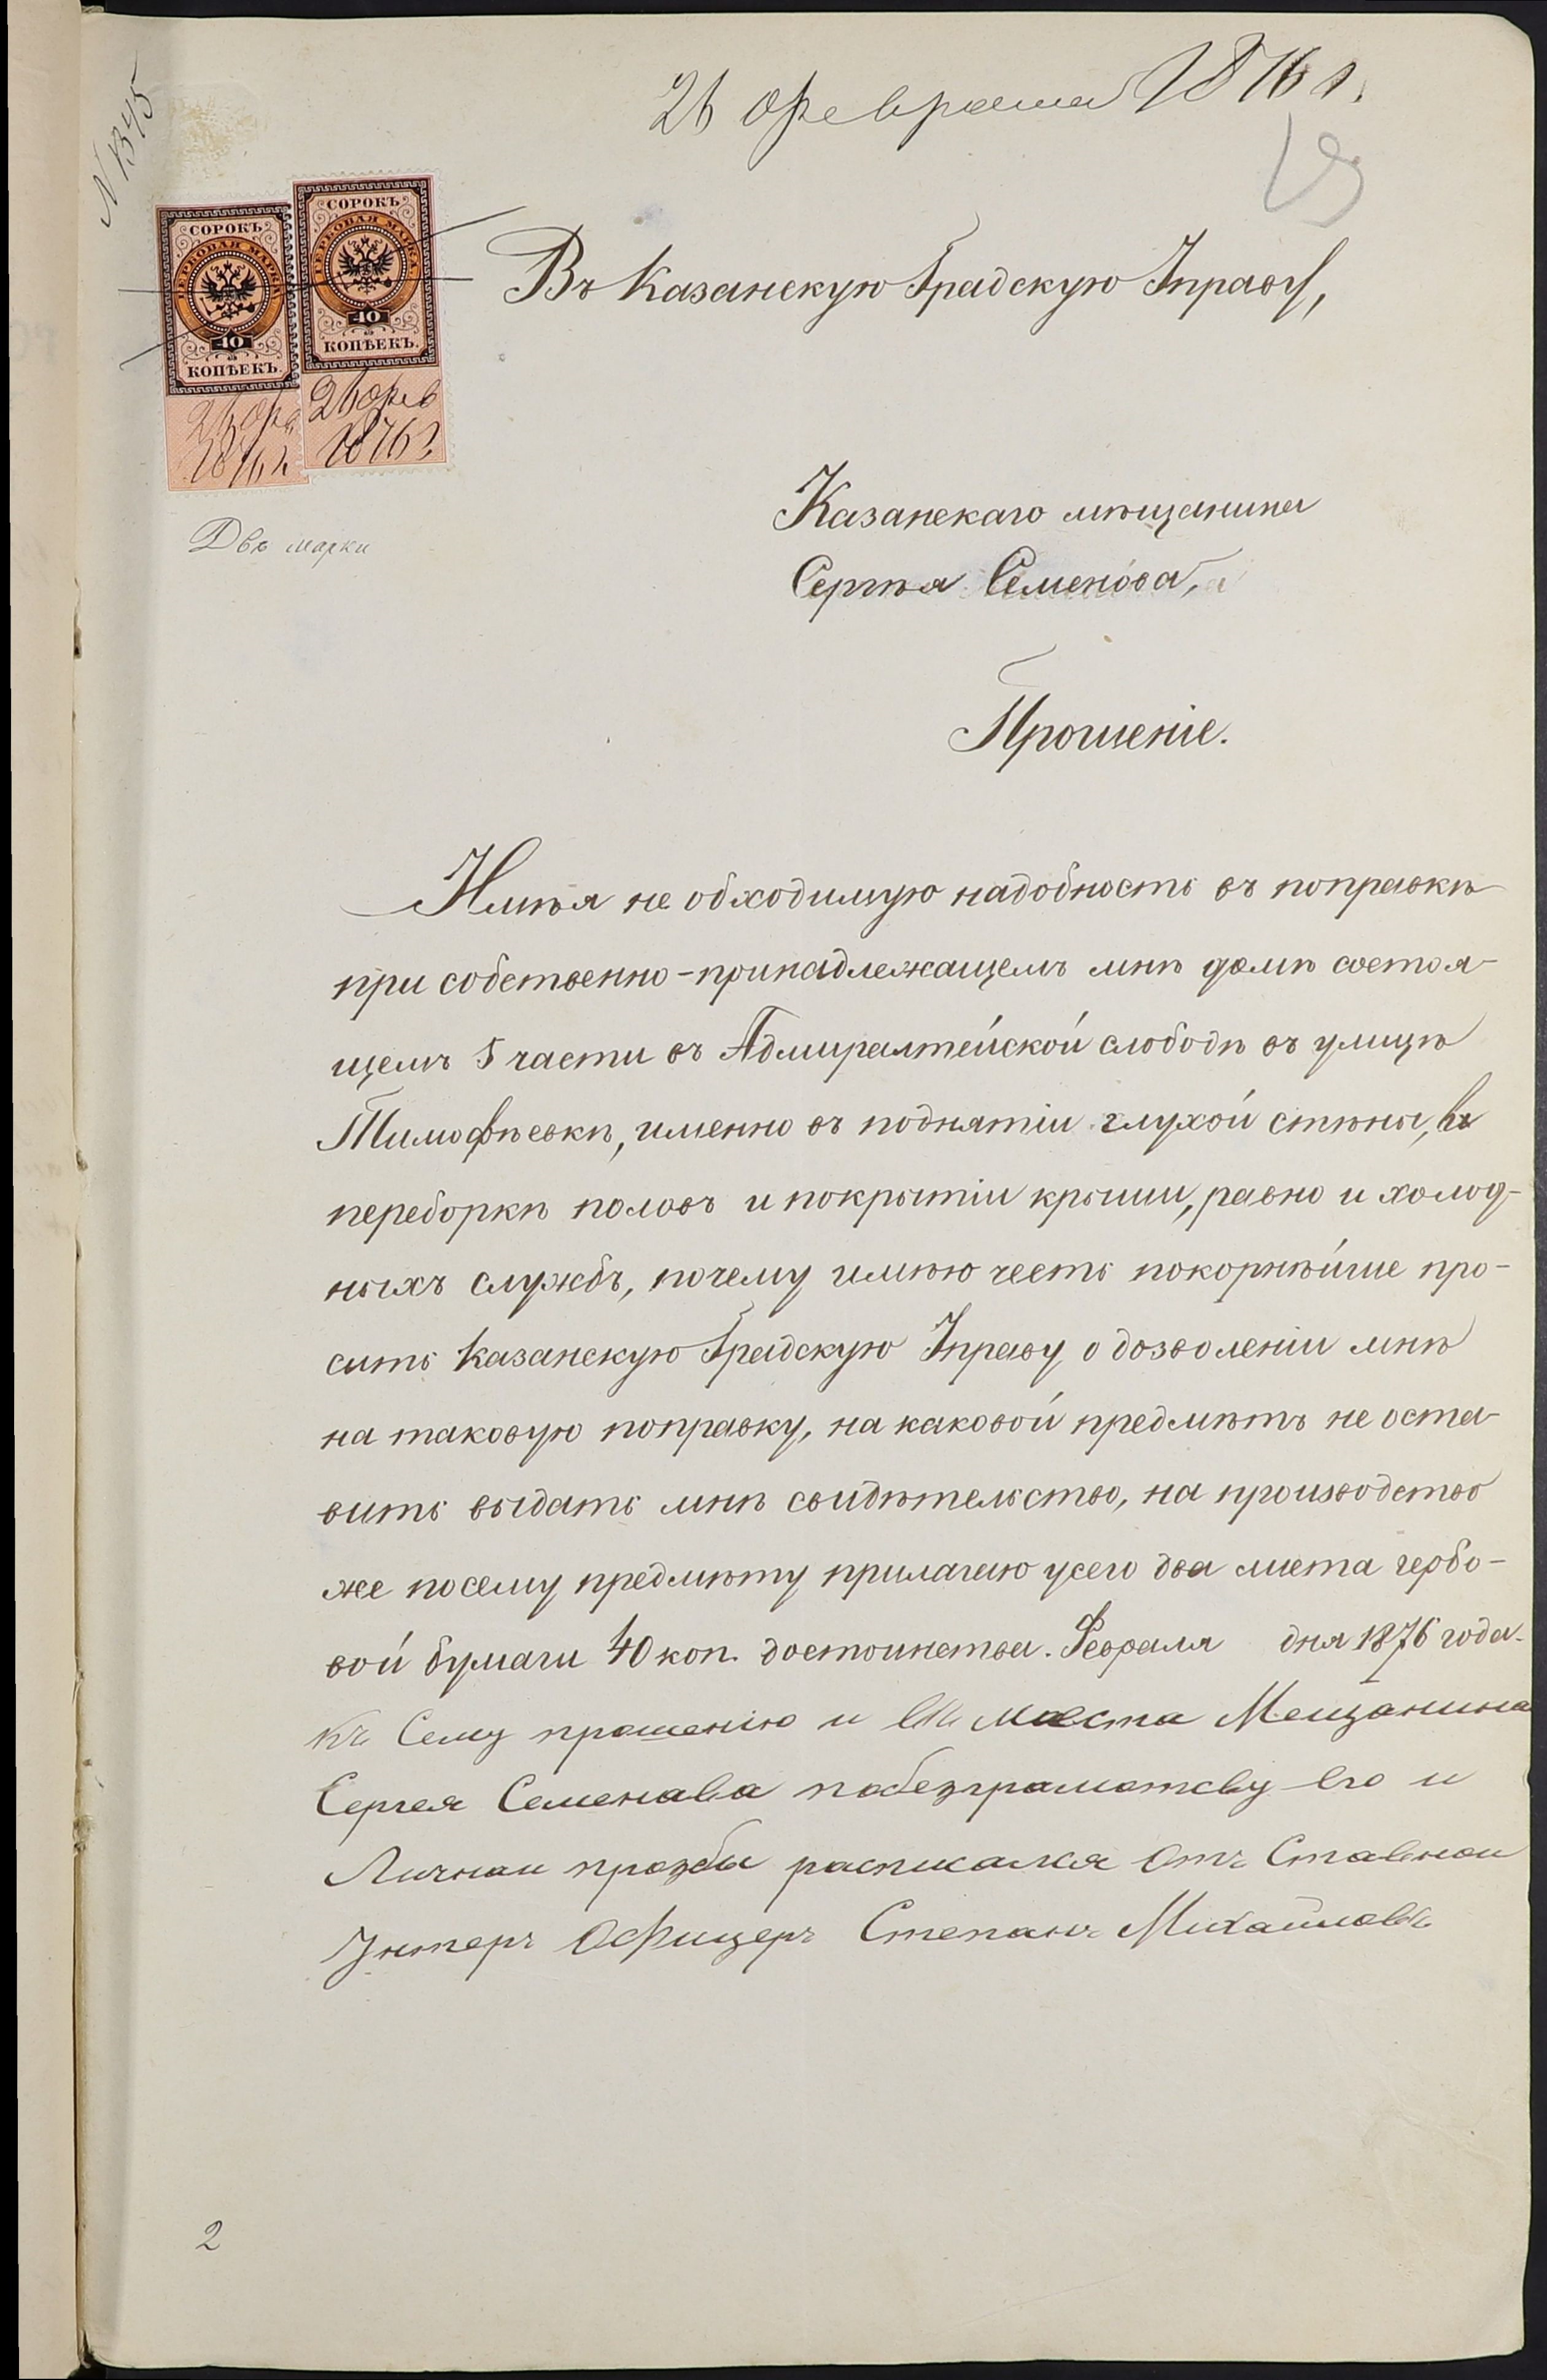 26 февраля 1876 г.
N 1345
СОРОКЪ
ГЕРБОВАЯ МАРКА
40
КОПѢЕКЪ.
26 фев
1876 г.
СОРОКЪ
ГЕРБОВАЯ МАРКА
40
КОПѢЕКЪ.
26 фев
1876 г.
Двѣ марки
Въ Казанскую Градскую Управу,
Казанскаго мѣщанина
Сергѣя Семенова,
Прошеніе.
Имѣя не обходимую надобность въ поправкѣ
при собственно-принадлежащемъ мнѣ домѣ состоя-
щемъ 5 части въ Адмиралтейской слободѣ въ улицѣ
Тимофѣевкѣ, именно въ поднятіи глухой стѣны, въ
переборкѣ половъ и покрытіи крыши, равно и холод-
ныхъ службъ, почему имѣю честь покорнѣйше про-
сить Казанскую Градскую Управу о дозволеніи мнѣ
на таковую поправку, на каковой предмѣтъ не оста-
вить выдать мнѣ свидѣтельство, на производство
же посему предмѣту прилагаю усего два листа гербо-
вой бумаги 40 коп. достоинства. Февраля дня 1876 года.
Къ Сему прашенію и въ места Мещанина
Сергея Семенава побезграмотсву его и
Личнои прозбы расписался отъ Ставнои
Унтеръ Офицеръ Степанъ Михайловъ
2